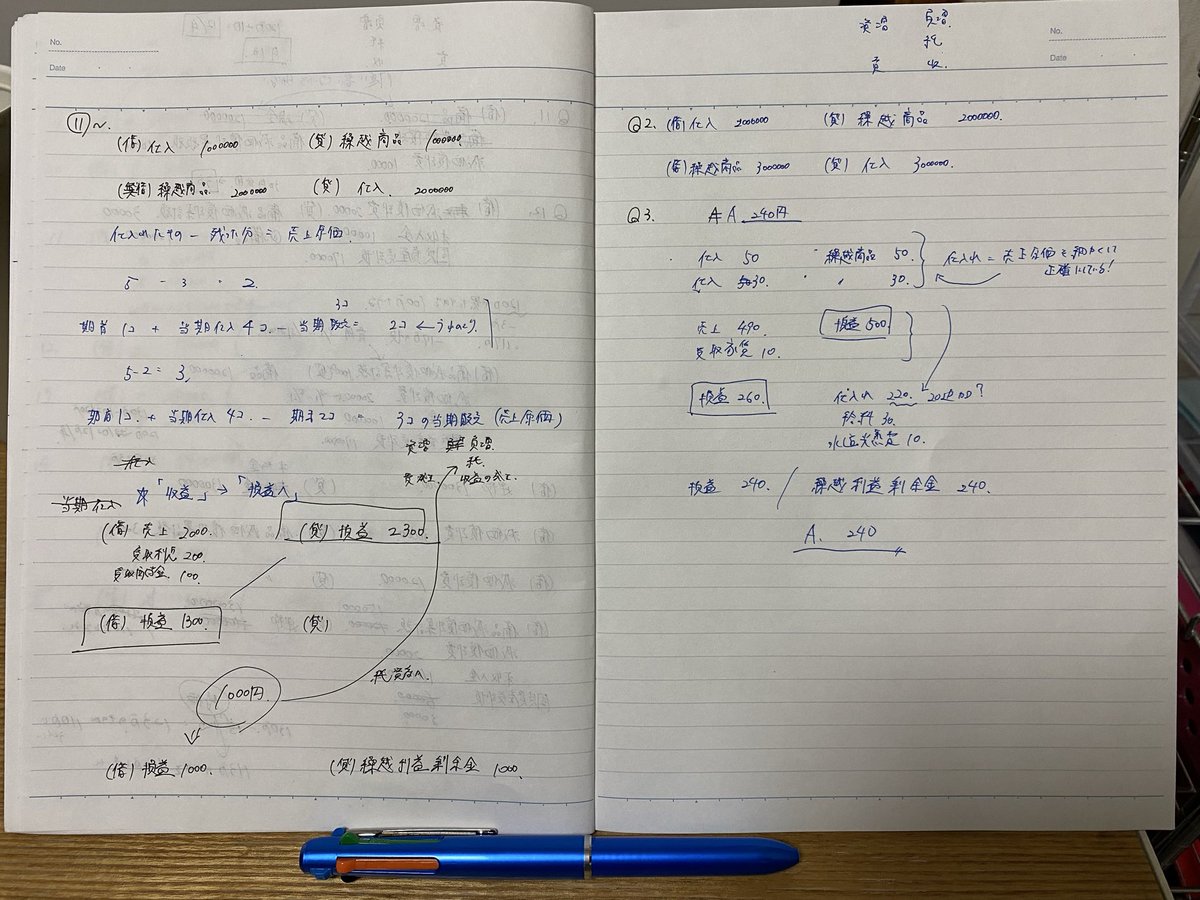 No.
Date
⑪~.
(借) 仕入 1000000 (貸) 繰越商品 1000000
(借) 繰越商品 2000000 (貸) 仕入 2000000
仕入れたもの - 残った分 = 売上原価
5 - 3 = 2.
期首1コ + 当期仕入4コ - 当期販売 3コ = 2コ ←
5-2 = 3,
期首1コ + 当期仕入4コ - 期末2コ = 3コの当期販売 (売上原価)
仕入
当期仕入
「収益」→「損益へ」
(借) 売上 2000. (貸) 損益 2300.
受取利息 200.
受取 100.
(借) 損益 1300. (貸)
1000円.
(借) 損益 1000. (貸) 繰越利益剰余金 1000.
No.
Date
Q2. (借) 仕入 2000000 (貸) 繰越商品 2000000.
(借) 繰越商品 3000000 (貸) 仕入 3000000.
Q3. A 240円
仕入 50 繰越商品 50.
仕入 30. 〃 30.
仕入れ = 売上原価を
正確
売上 490 損益 500
受取家賃 10.
損益 260. 仕入れ 220.
給料 30.
水道光熱費 10.
損益 240. / 繰越利益剰余金 240.
A. 240